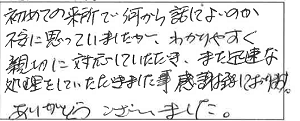 初めての来所で何から話してよいのか
不安に思っていましたが、わかりやすく
親切に対応していただき、また迅速な
処理をしていただきました事感謝致しております。
ありがとうございました。